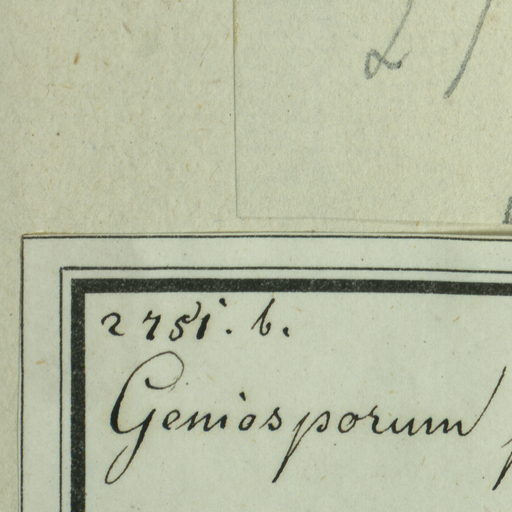 2751. b.
Geniosporum